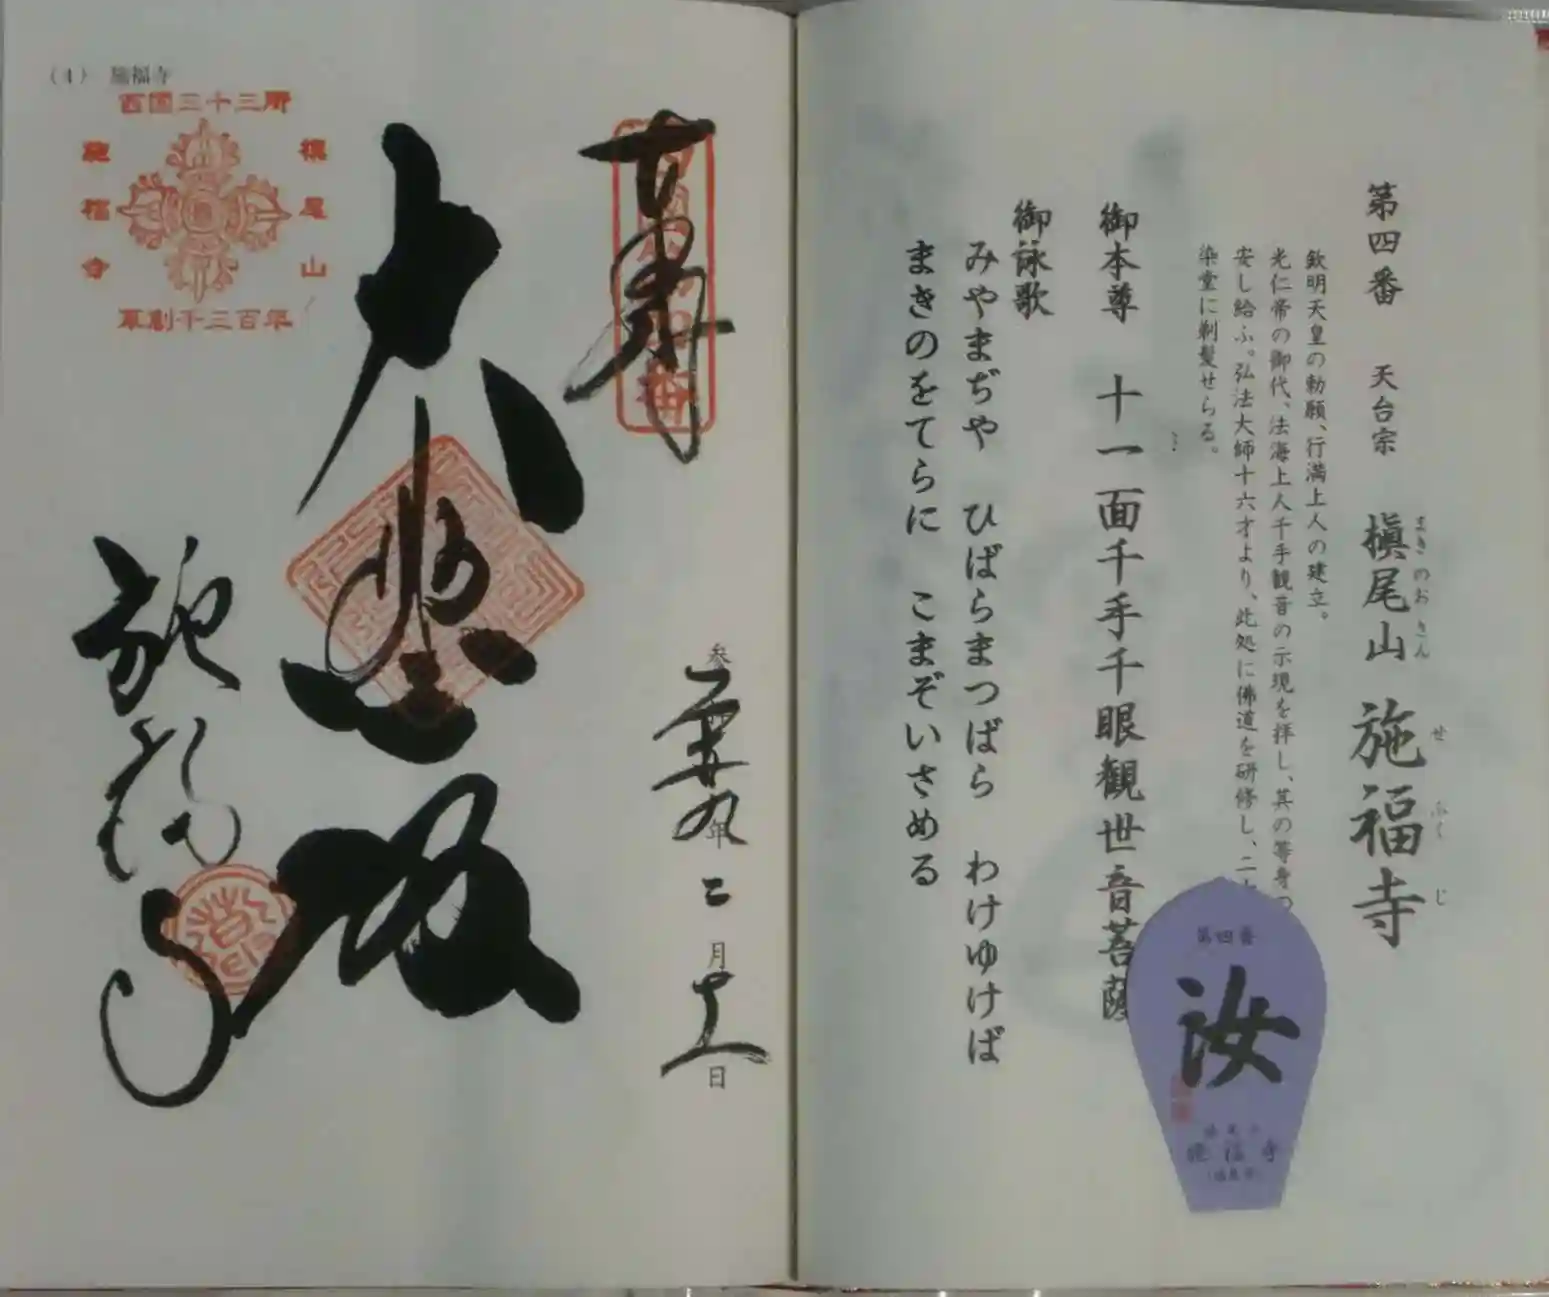 第四番 天台宗 槇尾山 施福寺
まきのおさん せふくじ
欽明天皇の勅願、行満上人の建立。
光仁帝の御代、法海上人千手観音の示現を拝し、其の等身
安し給ふ。弘法大師十六才より、此処に佛道を研修し、二
染堂に剃髪せらる。
御本尊 十一面千手千眼観世音菩薩
御詠歌
みやまぢや ひばらまつばら わけゆけば
まきのをてらに こまぞいさめる
第四番
汝
施福寺
(4) 施福寺
西国三十三所
槇尾山
施福寺
草創千三百年
奉拝
大悲殿
施福寺
年二月十一日